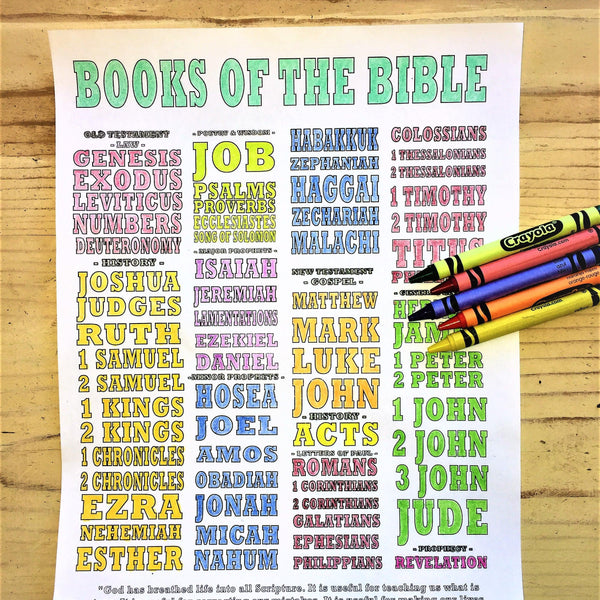 BOOKS OF THE BIBLE
OLD TESTAMENT
- LAW -
GENESIS
EXODUS
LEVITICUS
NUMBERS
DEUTERONOMY
- HISTORY -
JOSHUA
JUDGES
RUTH
1 SAMUEL
2 SAMUEL
1 KINGS
2 KINGS
1 CHRONICLES
2 CHRONICLES
EZRA
NEHEMIAH
ESTHER
- POETRY & WISDOM -
JOB
PSALMS
PROVERBS
ECCLESIASTES
SONG OF SOLOMON
- MAJOR PROPHETS -
ISAIAH
JEREMIAH
LAMENTATIONS
EZEKIEL
DANIEL
- MINOR PROPHETS -
HOSEA
JOEL
AMOS
OBADIAH
JONAH
MICAH
NAHUM
HABAKKUK
ZEPHANIAH
HAGGAI
ZECHARIAH
MALACHI
NEW TESTAMENT
- GOSPEL -
MATTHEW
MARK
LUKE
JOHN
- HISTORY -
ACTS
- LETTERS OF PAUL -
ROMANS
1 CORINTHIANS
2 CORINTHIANS
GALATIANS
EPHESIANS
PHILIPPIANS
COLOSSIANS
1 THESSALONIANS
2 THESSALONIANS
1 TIMOTHY
2 TIMOTHY
TITUS
1 PETER
2 PETER
1 JOHN
2 JOHN
3 JOHN
JUDE
- PROPHECY -
REVELATION
"God has breathed life into all Scripture. It is useful for teaching us what is
It is useful for correcting our mistakes. It is useful for making our lives
Crayola
Crayola.com